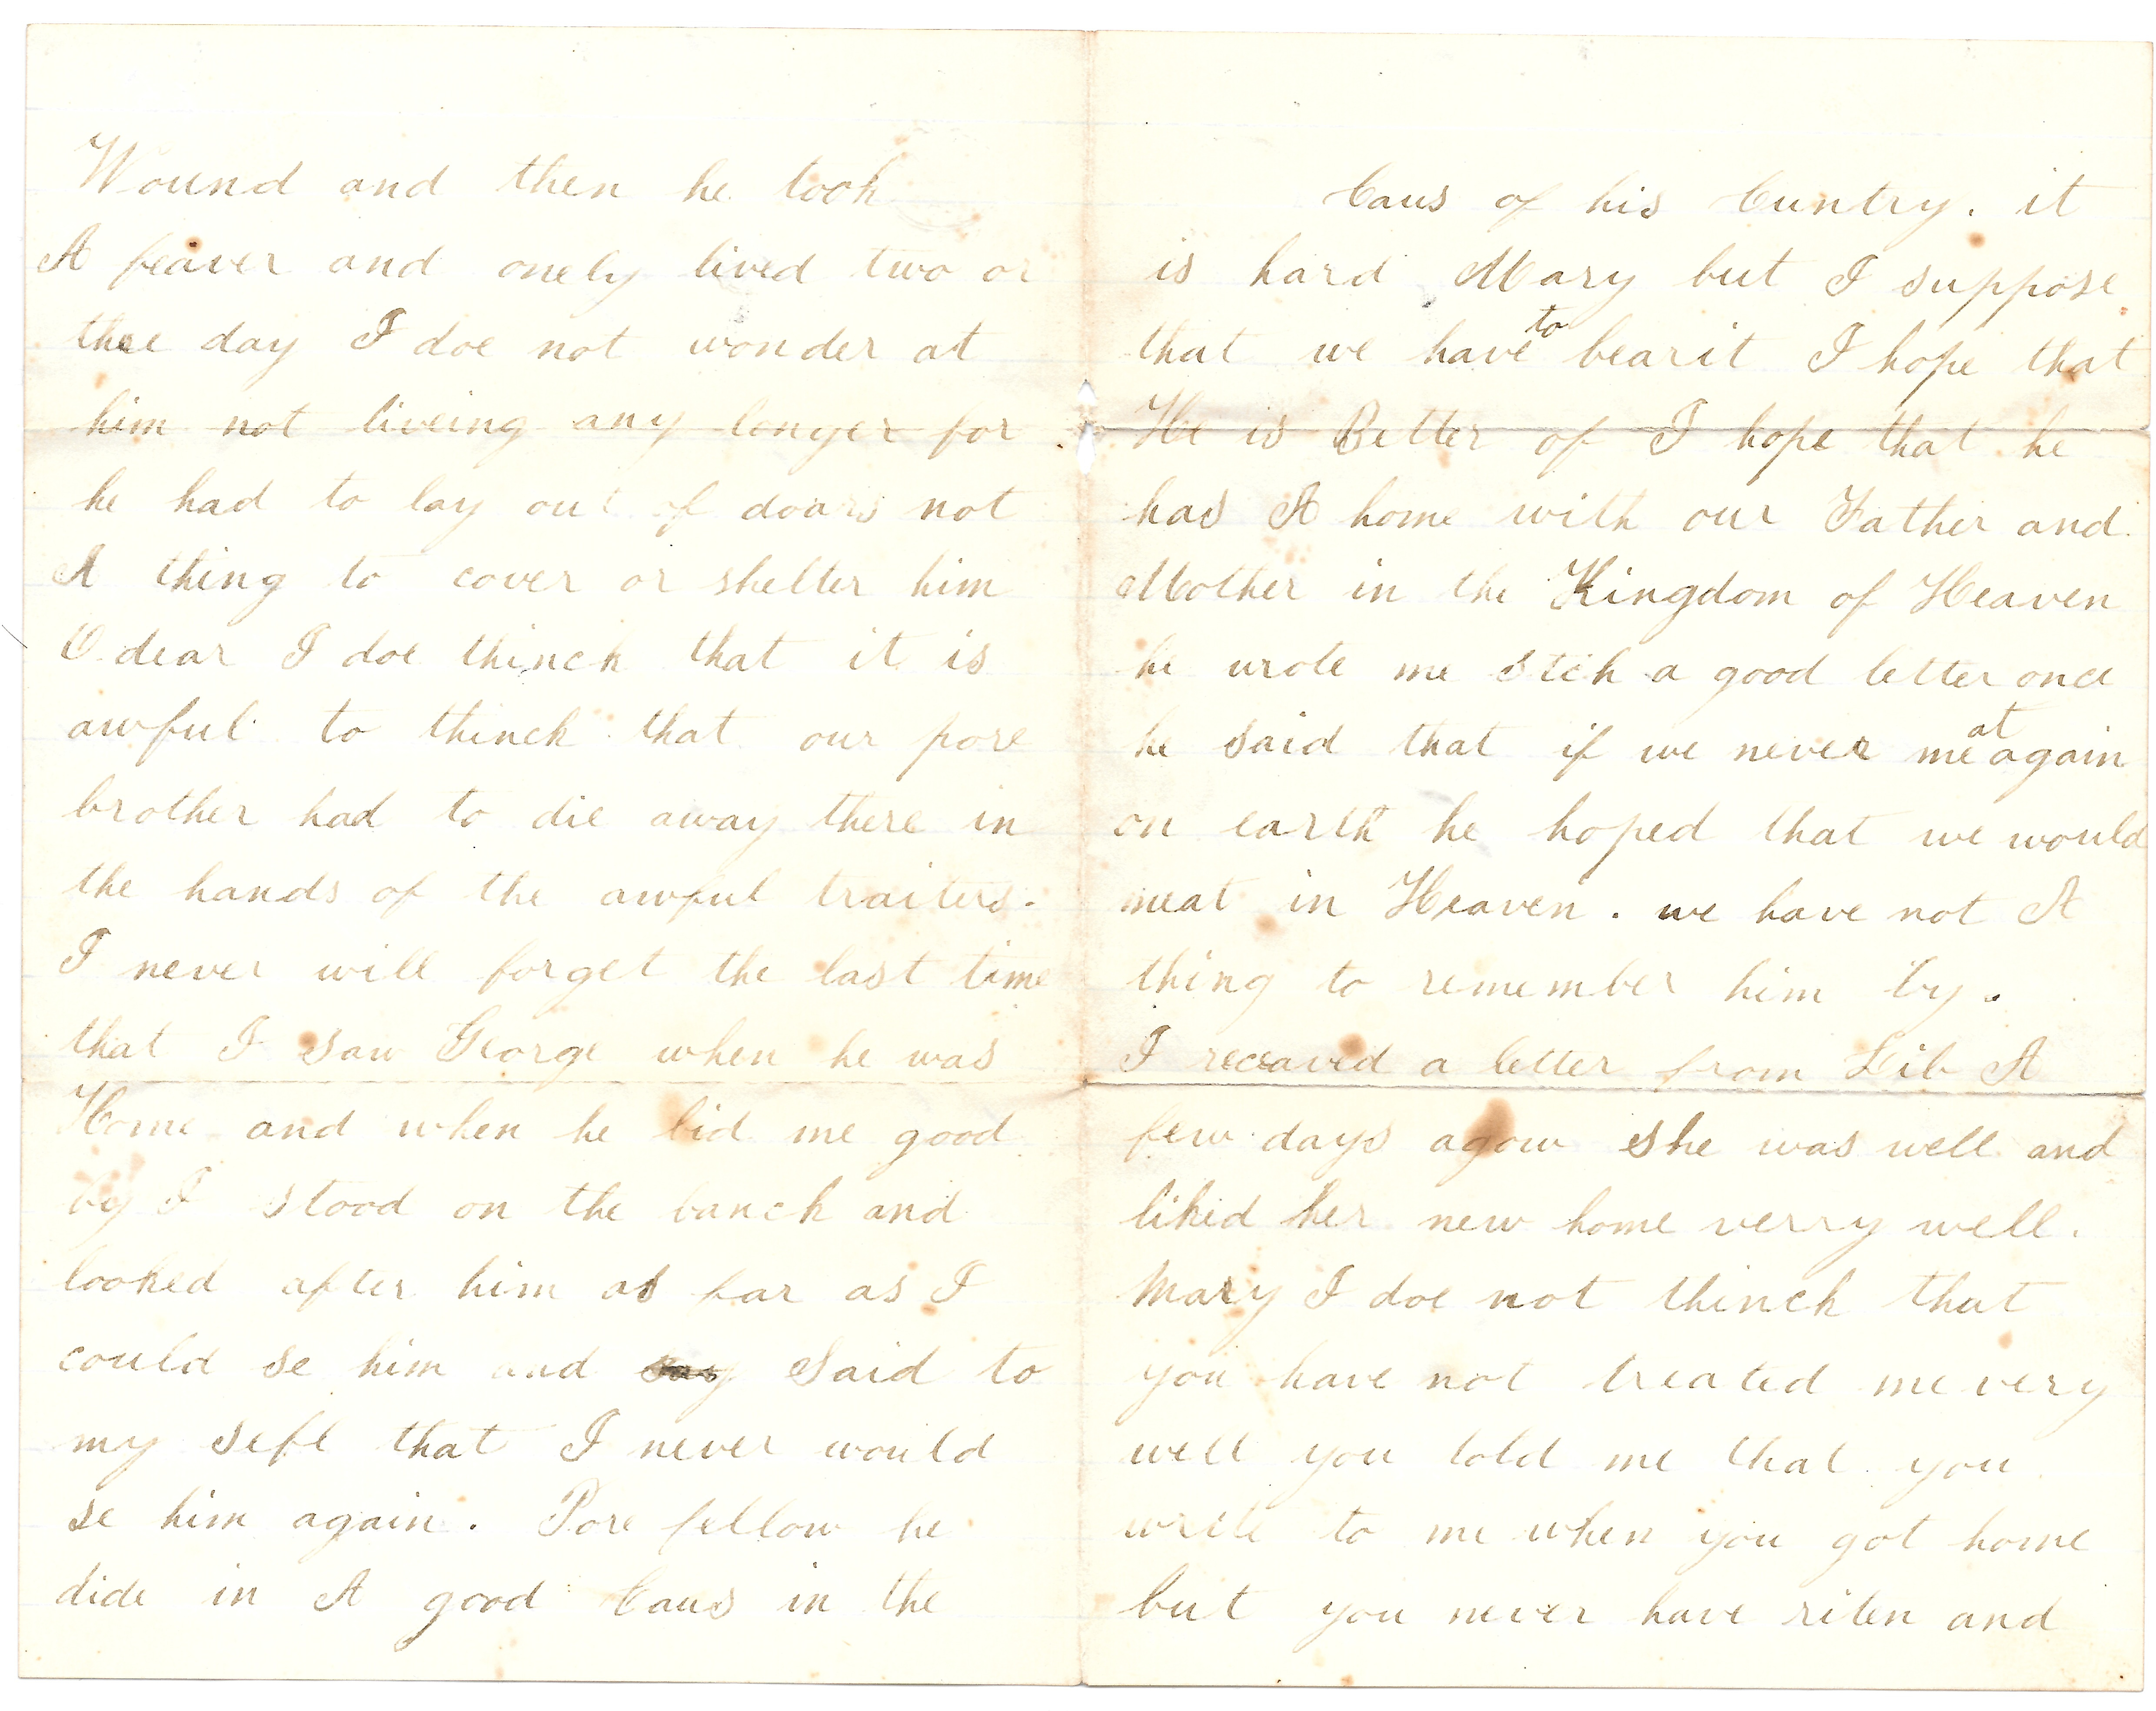 Wound and then he took
A feaver and onely lived two or
thee day I doe not wonder at
him not liveing any longer for
he had to lay out of doars not
A thing to cover or shelter him
O dear I doe thinck that it is
awful to thinck that our pore
brother had to die away there in
the hands of the awful traiters.
I never will forget the last time
that I saw George when he was
Home and when he bid me good
by I stood on the banck and
looked after him as far as I
could se him and say said to
my sefl that I never would
se him again. Pore fellow he
dide in A good Caus in the
Caus of his Cuntry. it
is hard Mary but I suppose
that we have to bearit I hope that
He is Better of I hope that he
has A home with our Father and
Mother in the Kingdom of Heaven
he wrote me sich a good letter once
he said that if we never meat again
on earth he hoped that we would
meat in Heaven. we have not A
thing to remember him by.
I receaved a letter from Lib A
few days agow she was well and
liked her new home verry well.
Mary I doe not thinck that
you have not treated me very
well you told me that you
write to me when you got home
but you never have riten and